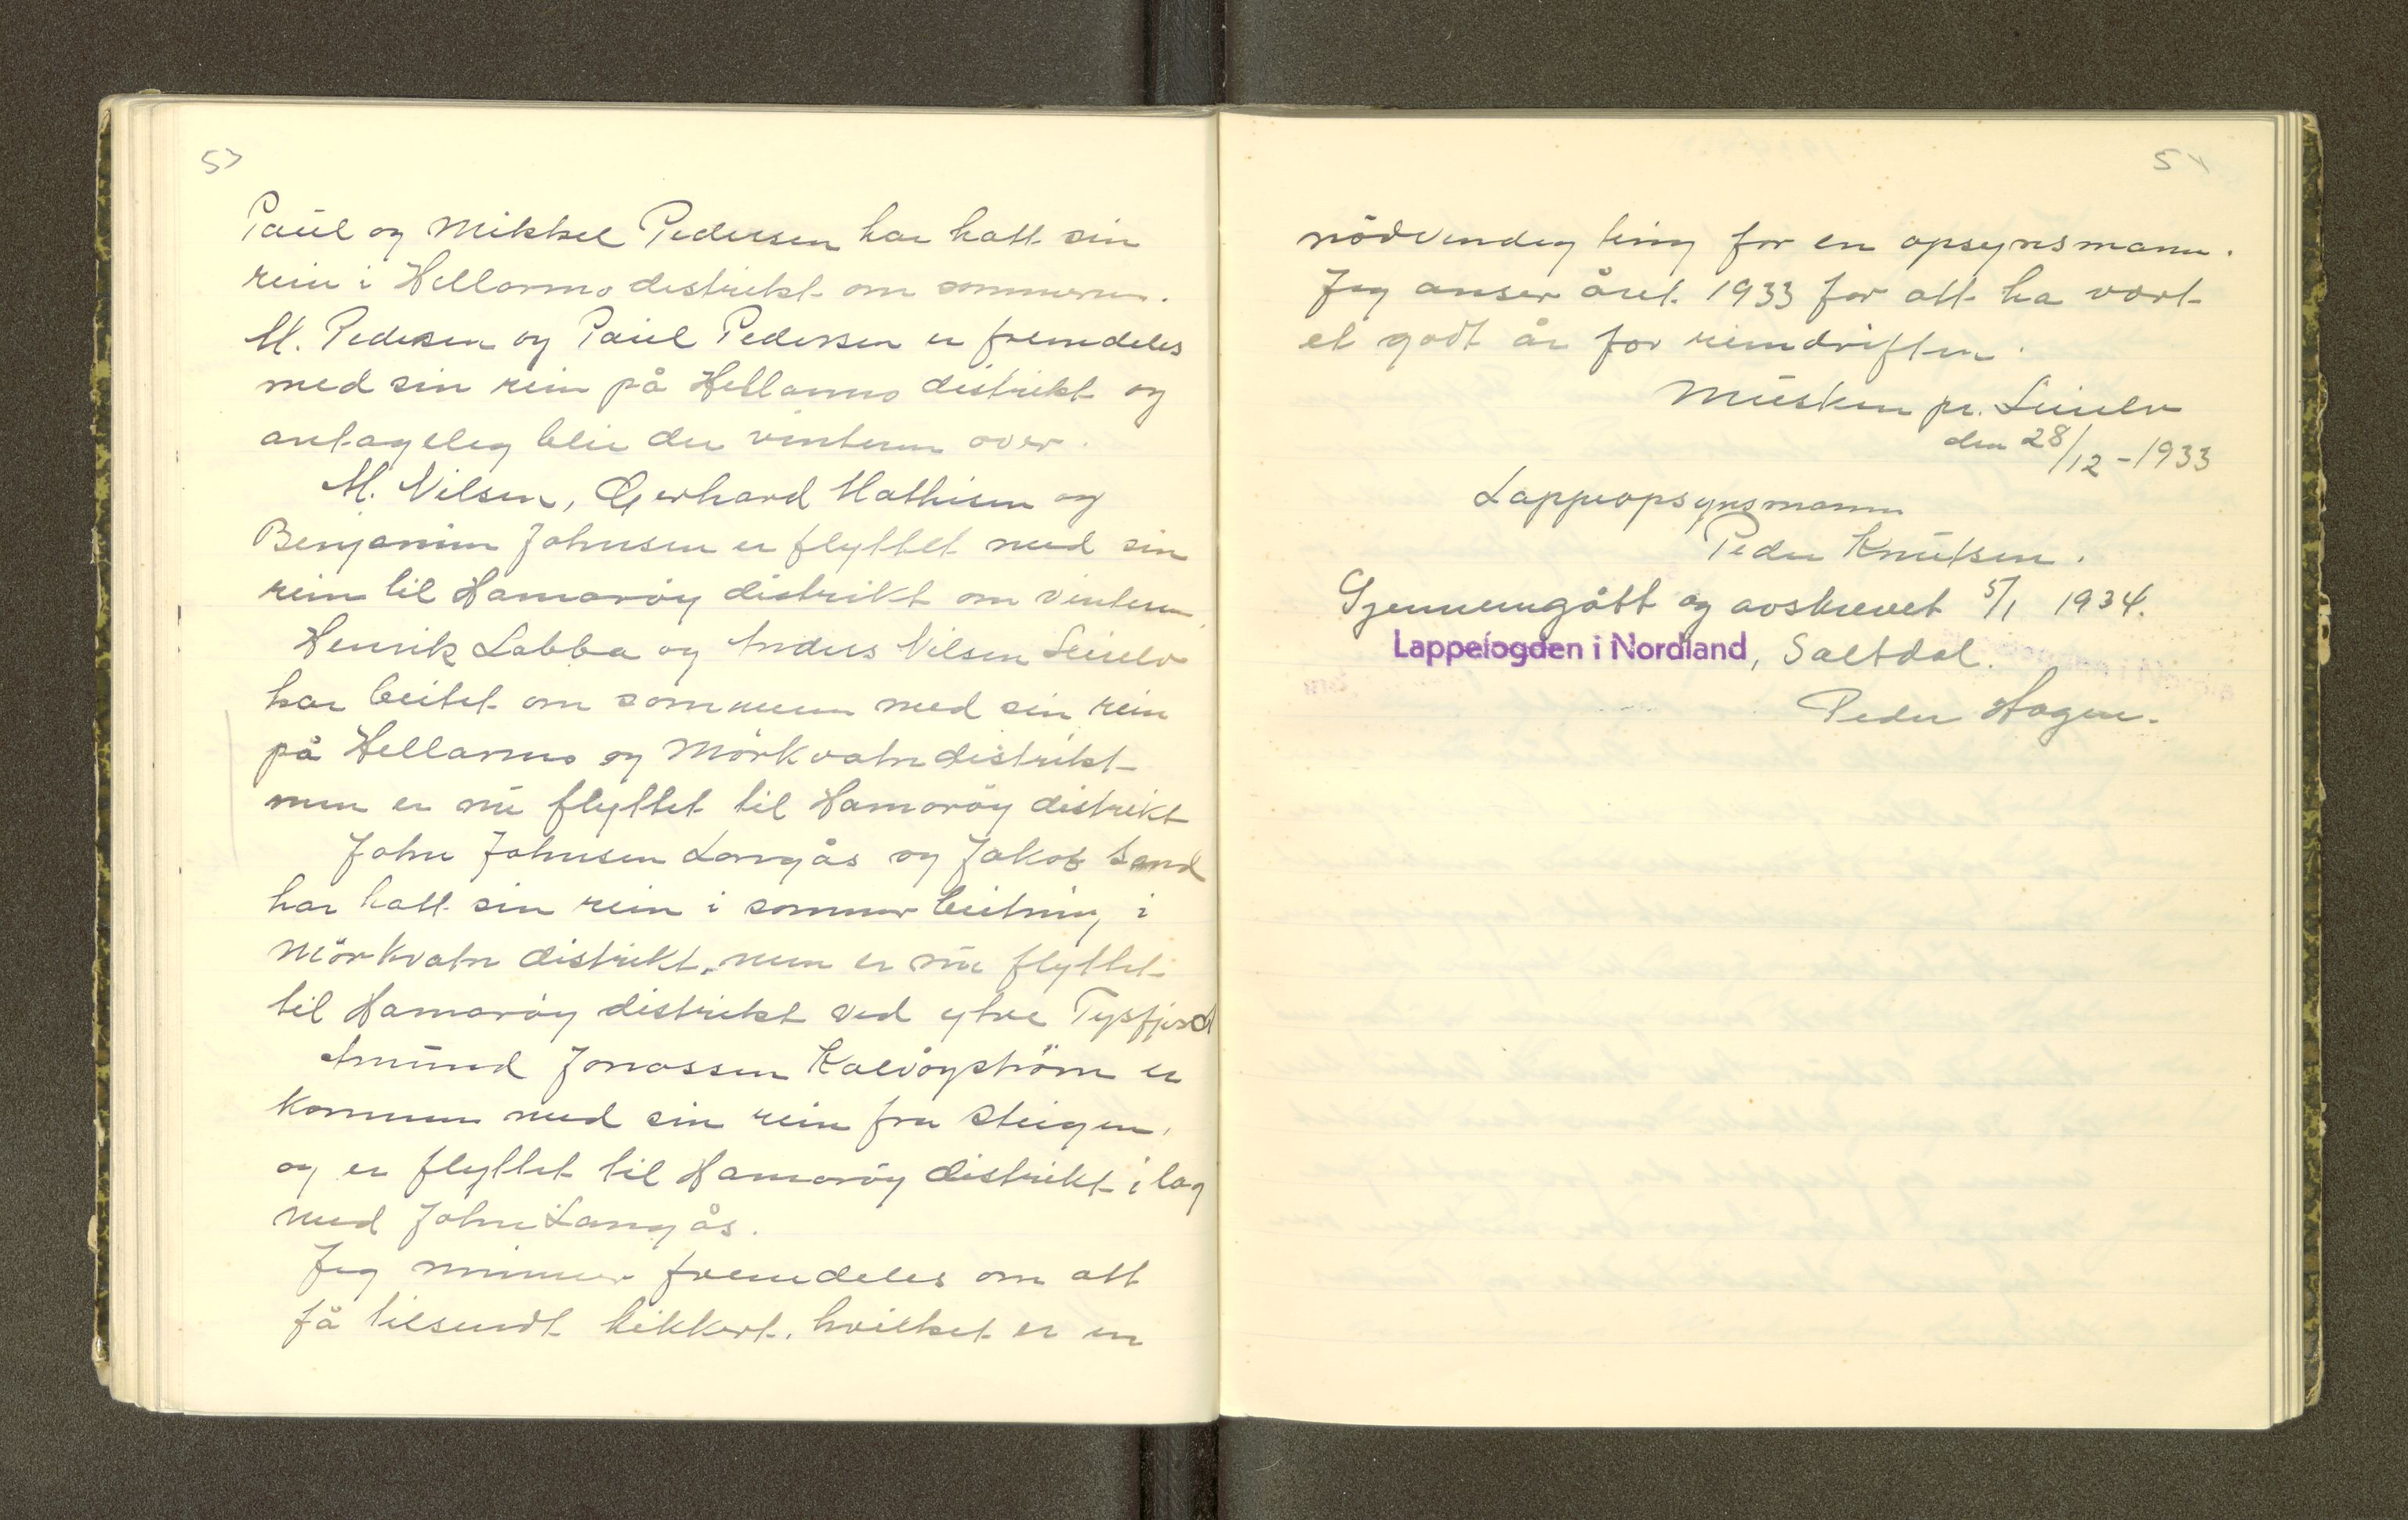 53
Paul og Mikkel Pedersen har hatt sin
rein i Hellarmo distrikt om sommeren.
M. Pedersen og Paul Pedersen er fremdeles
med sin rein på Hellarmo distrikt og
antageleg blir der vinteren over.
M. Nilsen, Gerhard Mathisen og
Benjamin Johnsen er flyttet med sin
rein til Hamaröy distrikt om vinteren.
Henrik Labba og Anders Nilsen Leirelv
har beitet om sommeren med sin rein
på Hellarmo og Mörkvatn distrikt
men er nu flyttet til Hamaröy distrikt
John Johnsen Langås og Jakob Sand
har hatt sin rein i sommerbeitning i
Mörkvatn distrikt, men er nu flyttet
til Hamaröy distrikt ved ytre Tysfjord
Amund Jonassen Kalvöyström er
kommen med sin rein fra Steigen,
og er flyttet til Hamaröy distrikt i lag
med John Langås.
Jeg minner fremdeles om att
få tilsendt kikkert, hvilket er en
54
nödvendig ting for en opsynsmann.
Jeg anser året 1933 for att ha vært
et godt år for reindriften.
Musken pr. Leirelv
den 28/12-1933
Lappeopsynsmann
Peder Knutsen.
Gjennemgått og avskrevet 5/1 1934.
Lappefogden i Nordland, Saltdal.
Peder Hagen.